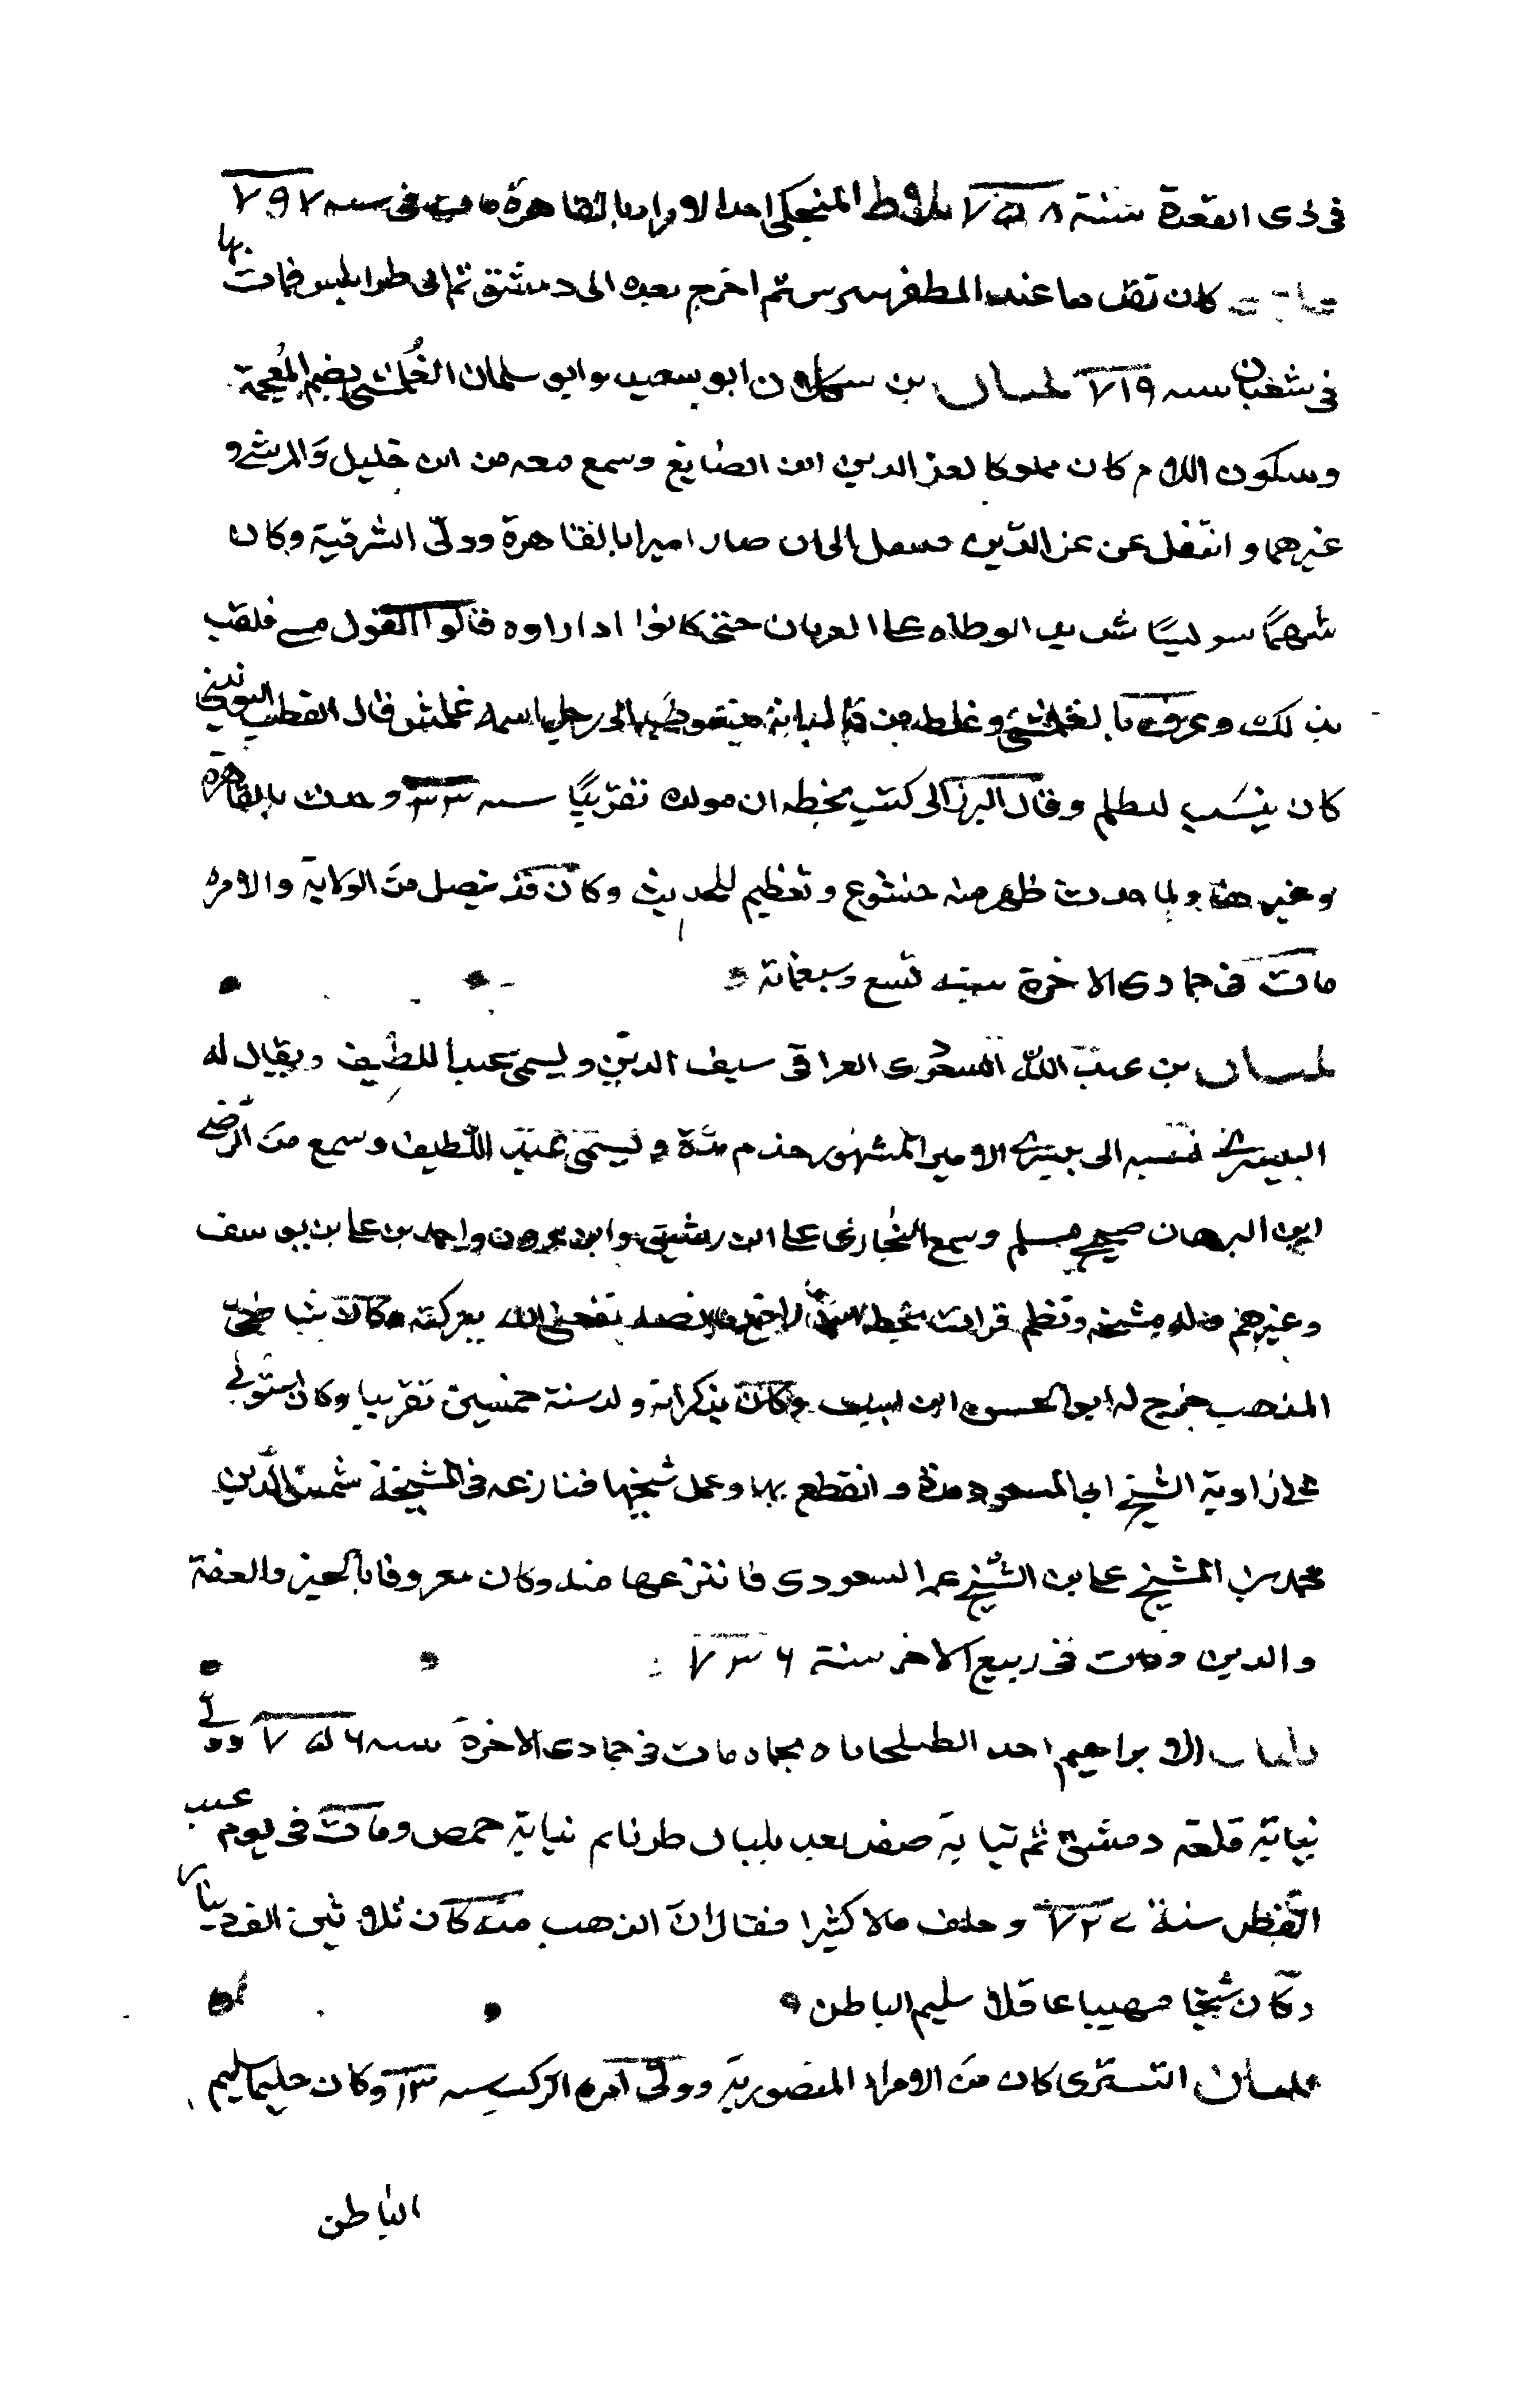 في ذي القعدة سنة ٧٥٨ بلاط المنجكي احد الامرا بالقاهرة مات في سنه ٧٩٧
كان تقدما عند المظفر بيبرس ثم اخرج بعده الى دمشق ثم الى طرابلس فمات بها
في شعبان سنه ٧١٩ بلبان بن ابو سعيد وابو سلمان الغلمشي بضم المعجمة
وسكون اللام كان مملوكا لعز الدين ابن الصايغ وسمع معه من ابن خليل والمرسي و
غيرهما وانتقل عن عز الدين الى ان صار اميرا بالقاهرة وولي الشرقية وكان
شهما شديد الوطاه على العربان حتى كانوا اذا راوه قالوا الغول مسي فلقب
بذلك وعرف بالغلمشي وغلط من قال انه منسوب الى رجل اسمه غلمش قال القطب اليونيني
كان ينسب لظلم وقال البرزالي كتب بخطه ان مولده تقريبًا سنه ٣٣ وحدث بالقاهرة
وغيرها ولما حدث ظهر منه خشوع وتعظيم للحديث وكان قد تنصل من الولاية والامره
مات في جمادى الاخرة سنه تسع وسبعمائة
بلبان بن عبد الله السعودي العراقي سيف الدين ويسمى عبد اللطيف ويقال له
البيسري نسبه الى بيسري الامير المشهور خدم مدة ويسمى عبد اللطيف وسمع من الرضي
ابن البرهان صحيح مسلم وسمع البخاري على ابن رشيق وابن عزون واحمد بن علي بن يوسف
وغيرهم وله مشيخه ونظم قرات بخطه نفعني الله ببركته وكان شافعي
المذهب خرج له ابو الحسين ابن ايبك وكان يذكر انه ولد سنة خمسين تقريبا وكان استولى
على زاوية الشيخ ابي السعود مدة وانقطع بها وعمل شيخها فنازعه في المشيخة شمس الدين
محمد بن الشيخ علي بن الشيخ عمر السعودي فانتزعها منه وكان معروفا بالخير والعفة
والدين ومات في ربيع الاخر سنة ٧٣٦
بلبان الابراهيمي احد الطبلخاناه بحماه مات في جمادى الاخرة سنه ٧٥٦ وولي
نيابة قلعة دمشق ثم نيابة صفد بعد بلبان طرنا ثم نيابة حمص ومات في يوم عيد
الفطر سنة ٧٢٧ وخلف مالا كثيرا فقال ان الذهب منه كان ثلاثين الف دينار
وكان شيخا مهيبا عاقلا سليم الباطن
بلبان التستري كان من الامراء المنصورية وولي امره الركب سنه ٧١٣ وكان حليما سليم
الباطن